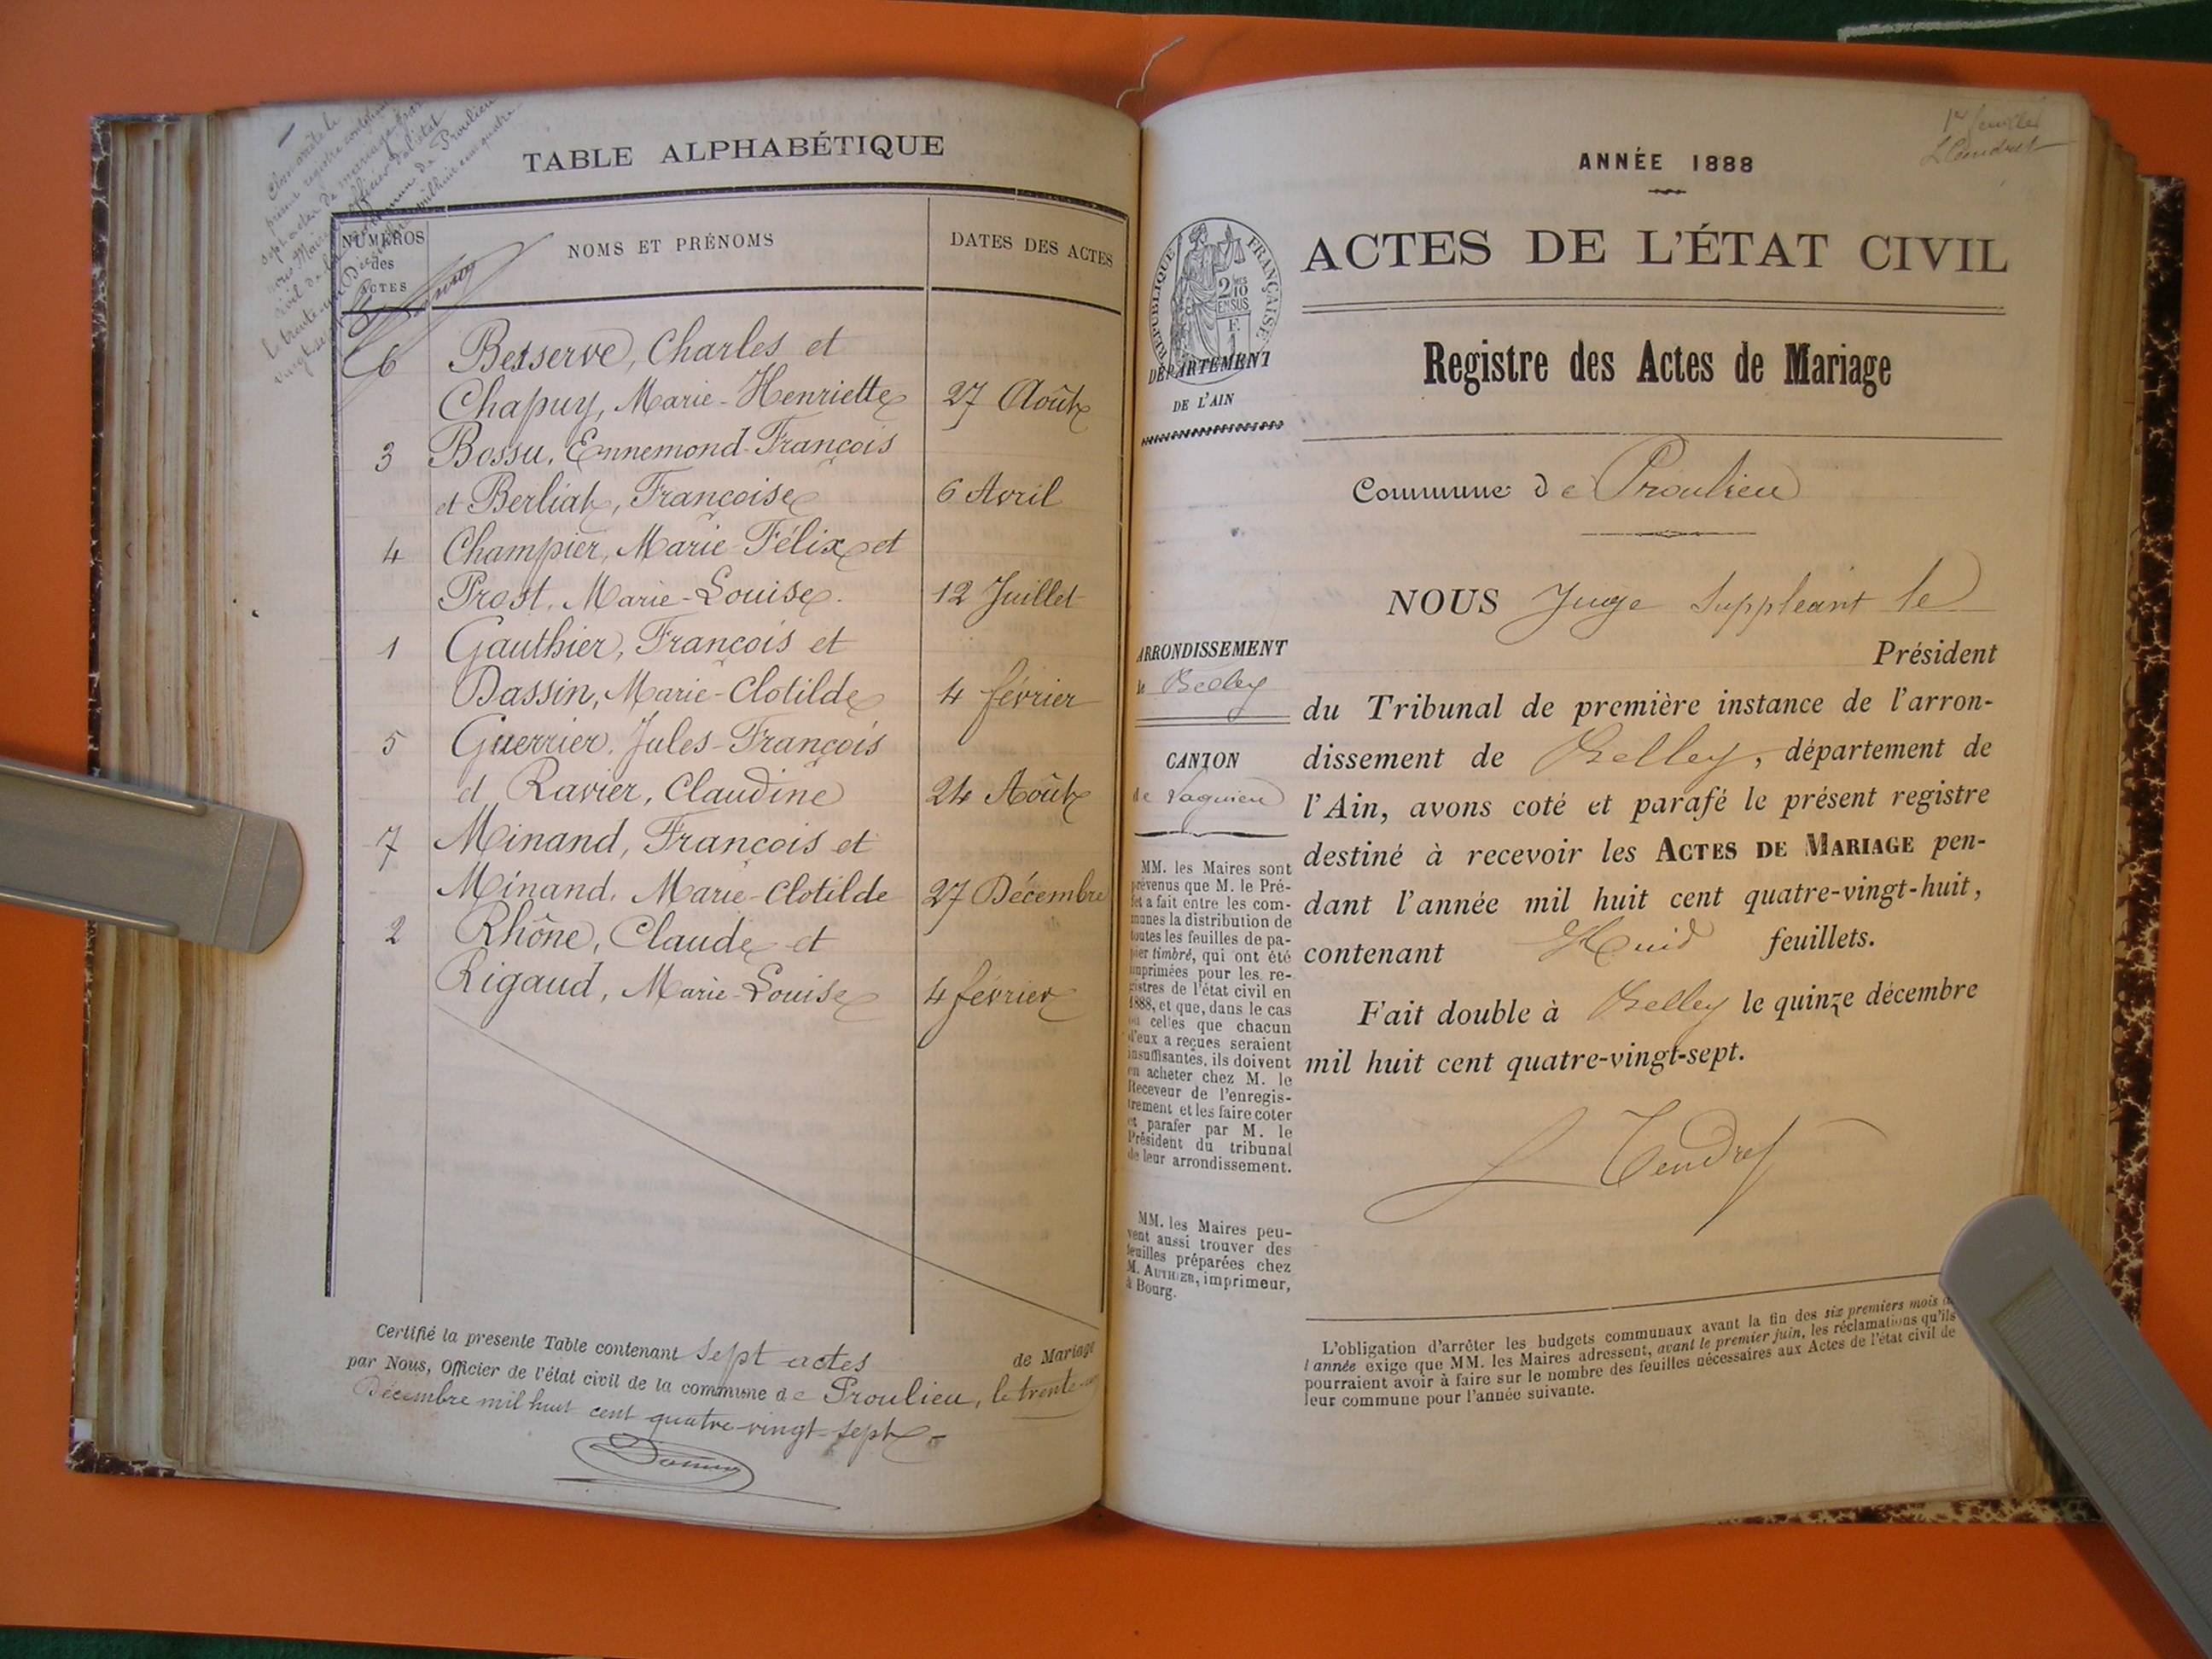 Clos et arrêté le
présent registre contenant
sept actes de mariage par
nous Maire Officier de l'état
civil de la commune de Proulieu
le trente-un Décembre mil huit cent quatre
vingt-sept
TABLE ALPHABÉTIQUE
NUMÉROS des ACTES
NOMS ET PRÉNOMS
DATES DES ACTES
6 Besserve, Charles et
Chapuy, Marie-Henriette 27 Août
3 Bossu, Ennemond-François
et Berliat, Françoise 6 Avril
4 Champier, Marie-Félix et
Prost, Marie-Louise. 12 Juillet
1 Gauthier, François et
Dassin, Marie-Clotilde 4 février
5 Guerrier, Jules-François
et Ravier, Claudine 24 Août
7 Minand, François et
Minand, Marie-Clotilde 27 Décembre
2 Rhône, Claude et
Rigaud, Marie-Louise 4 février
Certifié la presente Table contenant sept actes de Mariage
par Nous, Officier de l'état civil de la commune de Proulieu, le trente-un
Décembre mil huit cent quatre-vingt-sept
1er feuillet
L Tendret
ANNÉE 1888
ACTES DE L'ÉTAT CIVIL
RÉPUBLIQUE FRANÇAISE
2/10
EN SUS
DÉPARTEMENT
DE L'AIN
Registre des Actes de Mariage
Commune de Proulieu
NOUS Juge Suppléant le
Président
ARRONDISSEMENT
de Belley
CANTON
de Lagnieu
du Tribunal de première instance de l'arron-
dissement de Belley, département de
l'Ain, avons coté et parafé le présent registre
destiné à recevoir les ACTES DE MARIAGE pen-
dant l'année mil huit cent quatre-vingt-huit,
contenant Huit feuillets.
Fait double à Belley le quinze décembre
mil huit cent quatre-vingt-sept.
L Tendret
MM. les Maires sont
prévenus que M. le Pré-
fet a fait entre les com-
munes la distribution de
toutes les feuilles de pa-
pier timbré, qui ont été
imprimées pour les re-
gistres de l'état civil en
1888, et que, dans le cas
où celles que chacun
d'eux a reçues seraient
insuffisantes, ils doivent
en acheter chez M. le
Receveur de l'enregis-
trement et les faire coter
et parafer par M. le
Président du tribunal
de leur arrondissement.
MM. les Maires peu-
vent aussi trouver des
feuilles préparées chez
M. AUTHIER, imprimeur,
à Bourg.
L'obligation d'arrêter les budgets communaux avant la fin des six premiers mois de
l'année exige que MM. les Maires adressent, avant le premier juin, les réclamations qu'ils
pourraient avoir à faire sur le nombre des feuilles nécessaires aux Actes de l'état civil de
leur commune pour l'année suivante.